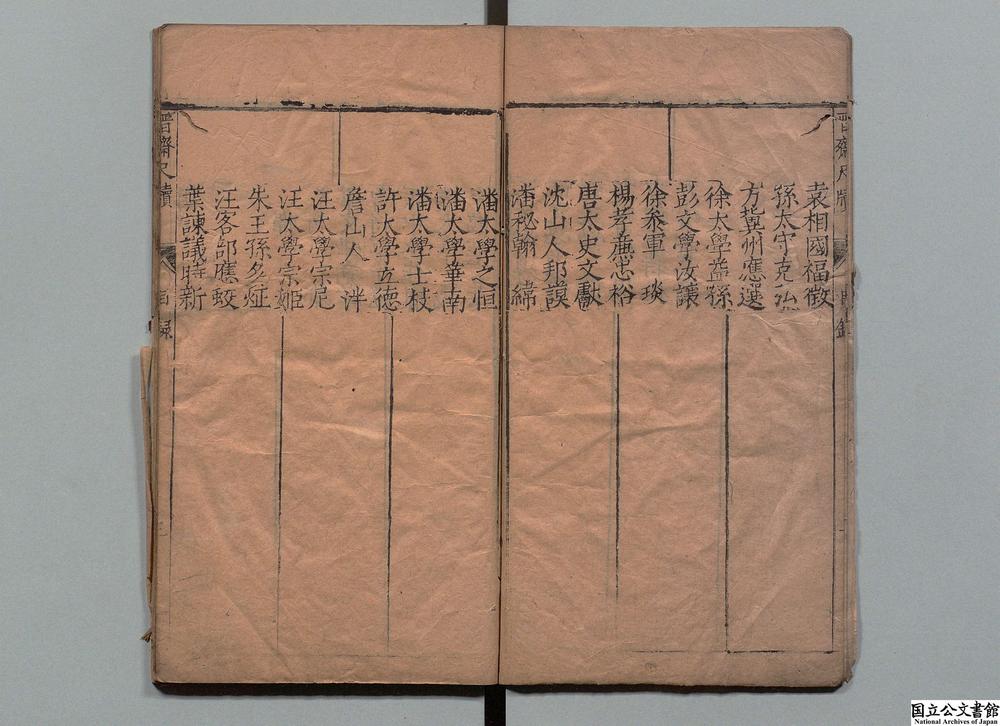 袁相國福徵
孫太守克弘
方冀州應選
徐太學益孫
彭文學汝讓
徐參軍 琰
楊孝廉忠裕
唐太史文獻
沈山人邦謨
潘秘翰 緯
潘太學之恒
潘太學華南
潘太學士杖
許太學立德
詹山人 泮
汪太學宗尼
汪太學宗姬
朱王孫多炡
汪客部應蛟
葉諫議時新
晋齋尺牘 目錄
国立公文書館
National Archives of Japan